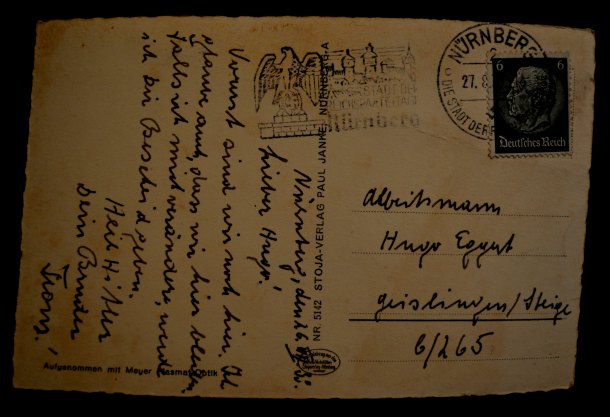 Nürnberg, den 26.
Lieber Hugo!
Vorerst sind wir noch hier. Ich
glaube auch, dass wir hier bleiben.
Falls ich mich verändere, werde
ich Dir Bescheid geben.
Heil Hitler
Dein Bruder
Aufgenommen mit Meyer
NR. 5142 STOJA-VERLAG PAUL JANKE, NÜRNBERG-A
STADT DER
REICHSPARTEITAGE
Nürnberg
NÜRNBERG
27. 8
DIE STADT DER
6 6
Deutsches Reich
Arbeitsmann
Hugo Eggert
Geislingen/Steige
6/265